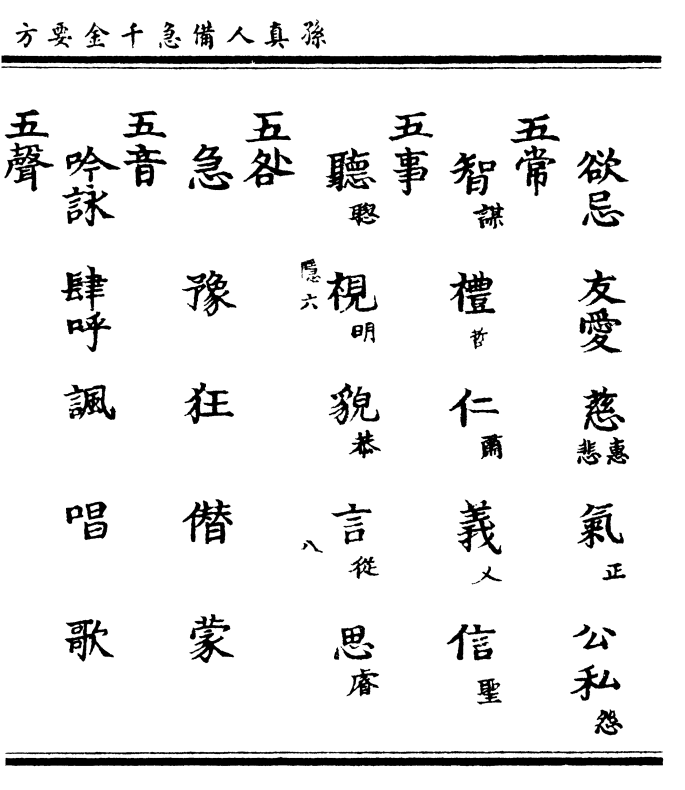 孫真人備急千金要方
欲忌 友愛 慈惠悲 氣正 公私怨
五常
智謀 禮哲 仁肅 義乂 信聖
五事
聽聰 視明 貌恭 言從 思睿
隱六 八
五咎
急 豫 狂 僭 蒙
五音
吟詠 肆呼 諷 唱 歌
五聲